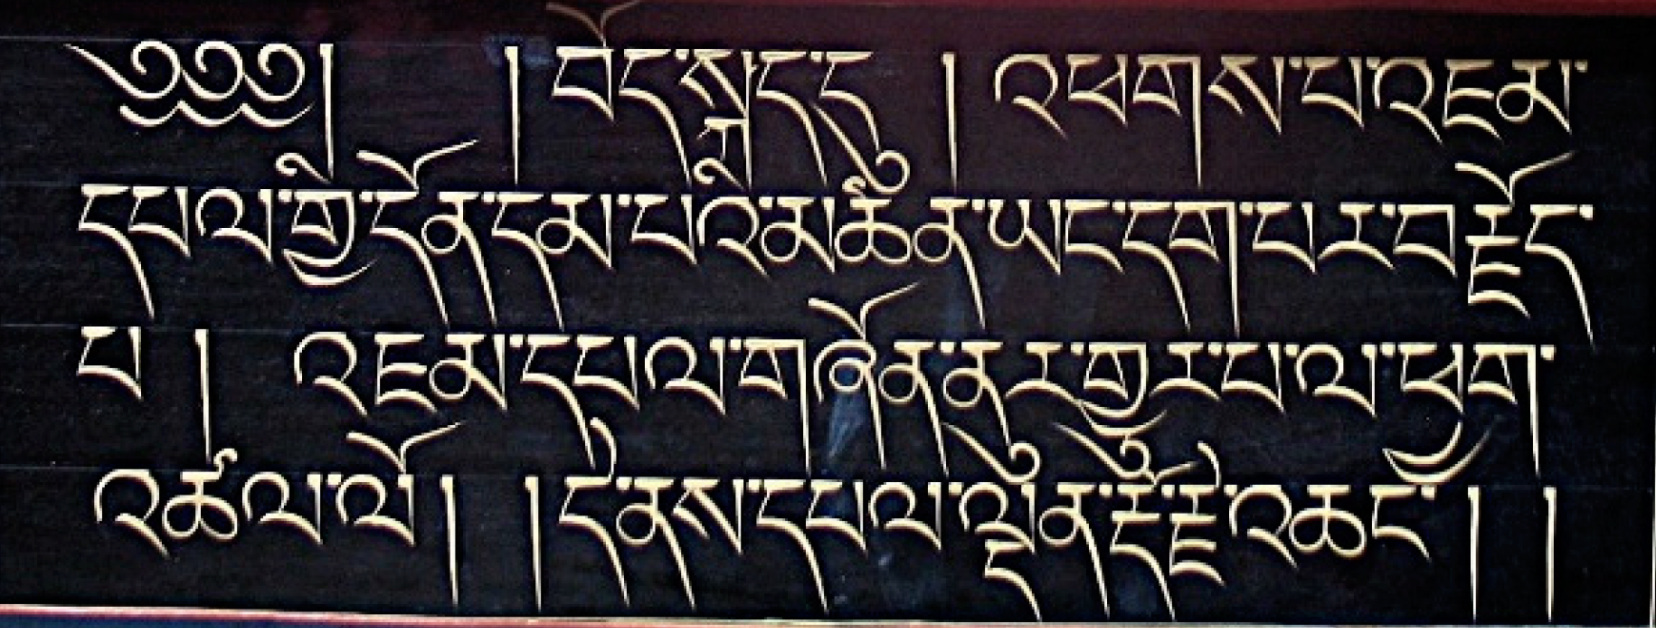 ༄༅༅། །བོད་སྐད་དུ། འཕགས་པ་འཇམ་
དཔལ་གྱི་དོན་དམ་པའི་མཚན་ཡང་དག་པར་བརྗོད་
པ། འཇམ་དཔལ་གཞོན་ནུར་གྱུར་པ་ལ་ཕྱག་
འཚལ་ལོ། །དེ་ནས་དཔལ་ལྡན་རྡོ་རྗེ་འཆང་། །